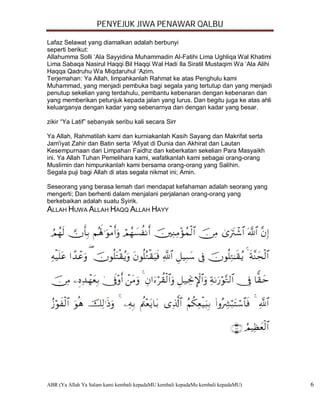 PENYEJUK JIWA PENAWAR QALBU
Lafaz Selawat yang diamalkan adalah berbunyi
seperti berikut:
Allahumma Solli ‘Ala Sayyidina Muhammadin Al-Fatihi Lima Ughliqa Wal Khatimi
Lima Sabaqa Nasirul Haqqi Bil Haqqi Wal Hadi Ila Siratil Mustaqim Wa ‘Ala Alihi
Haqqa Qadruhu Wa Miqdaruhul ‘Azim.
Terjemahan: Ya Allah, limpahkanlah Rahmat ke atas Penghulu kami
Muhammad, yang menjadi pembuka bagi segala yang tertutup dan yang menjadi
penutup sekelian yang terdahulu, pembantu kebenaran dengan kebenaran dan
yang memberikan petunjuk kepada jalan yang lurus. Dan begitu juga ke atas ahli
keluarganya dengan kadar yang sebenarnya dan dengan kadar yang besar.
zikir “Ya Latif” sebanyak seribu kali secara Sirr
Ya Allah, Rahmatilah kami dan kurniakanlah Kasih Sayang dan Makrifat serta
Jam'iyat Zahir dan Batin serta ‘Afiyat di Dunia dan Akhirat dan Lautan
Kesempurnaan dari Limpahan Faidhz dan keberkatan sekelian Para Masyaikh
ini. Ya Allah Tuhan Pemelihara kami, wafatkanlah kami sebagai orang-orang
Muslimin dan himpunkanlah kami bersama orang-orang yang Salihin.
Segala puji bagi Allah di atas segala nikmat ini; Amin.
Seseorang yang berasa lemah dari mendapat kefahaman adalah seorang yang
mengerti; Dan berhenti dalam menjalani perjalanan orang-orang yang
berkebaikan adalah suatu Syirik.
ALLAH HUWA ALLAH HAQQ ALLAH HAYY
إِنَّ ٱللَّهَ ٱشْتَرَىٰ مِنَ ٱلْمُؤْمِنِينَ أَنفُسَهُمْ وَأَمْوَٰلَهُم بِأَنَّ لَهُمُ
ٱلْجَنَّةَ ۚ يُقَٰتِلُونَ فِى سَبِيلِ ٱللَّهِ فَيَقْتُلُونَ وَيُقْتَلُونَ ۖ وَعْدًا عَلَيْهِ
حَقًّا فِى ٱلتَّوْرَىٰةِ وَٱلْإِنجِيلِ وَٱلْقُرْءَانِ ۚ وَمَنْ أَوْفَىٰ بِعَهْدِهِۦ مِنَ
ٱللَّهِ ۚ فَٱسْتَبْشِرُوا۟ بِبَيْعِكُمُ ٱلَّذِى بَايَعْتُم بِهِۦ ۚ وَذَٰلِكَ هُوَ ٱلْفَوْزُ
ٱلْعَظِيمُ ﴿١١١﴾
ABR (Ya Allah Ya Salam kami kembali kepadaMU kembali kepadaMu kembali kepadaMU) 6